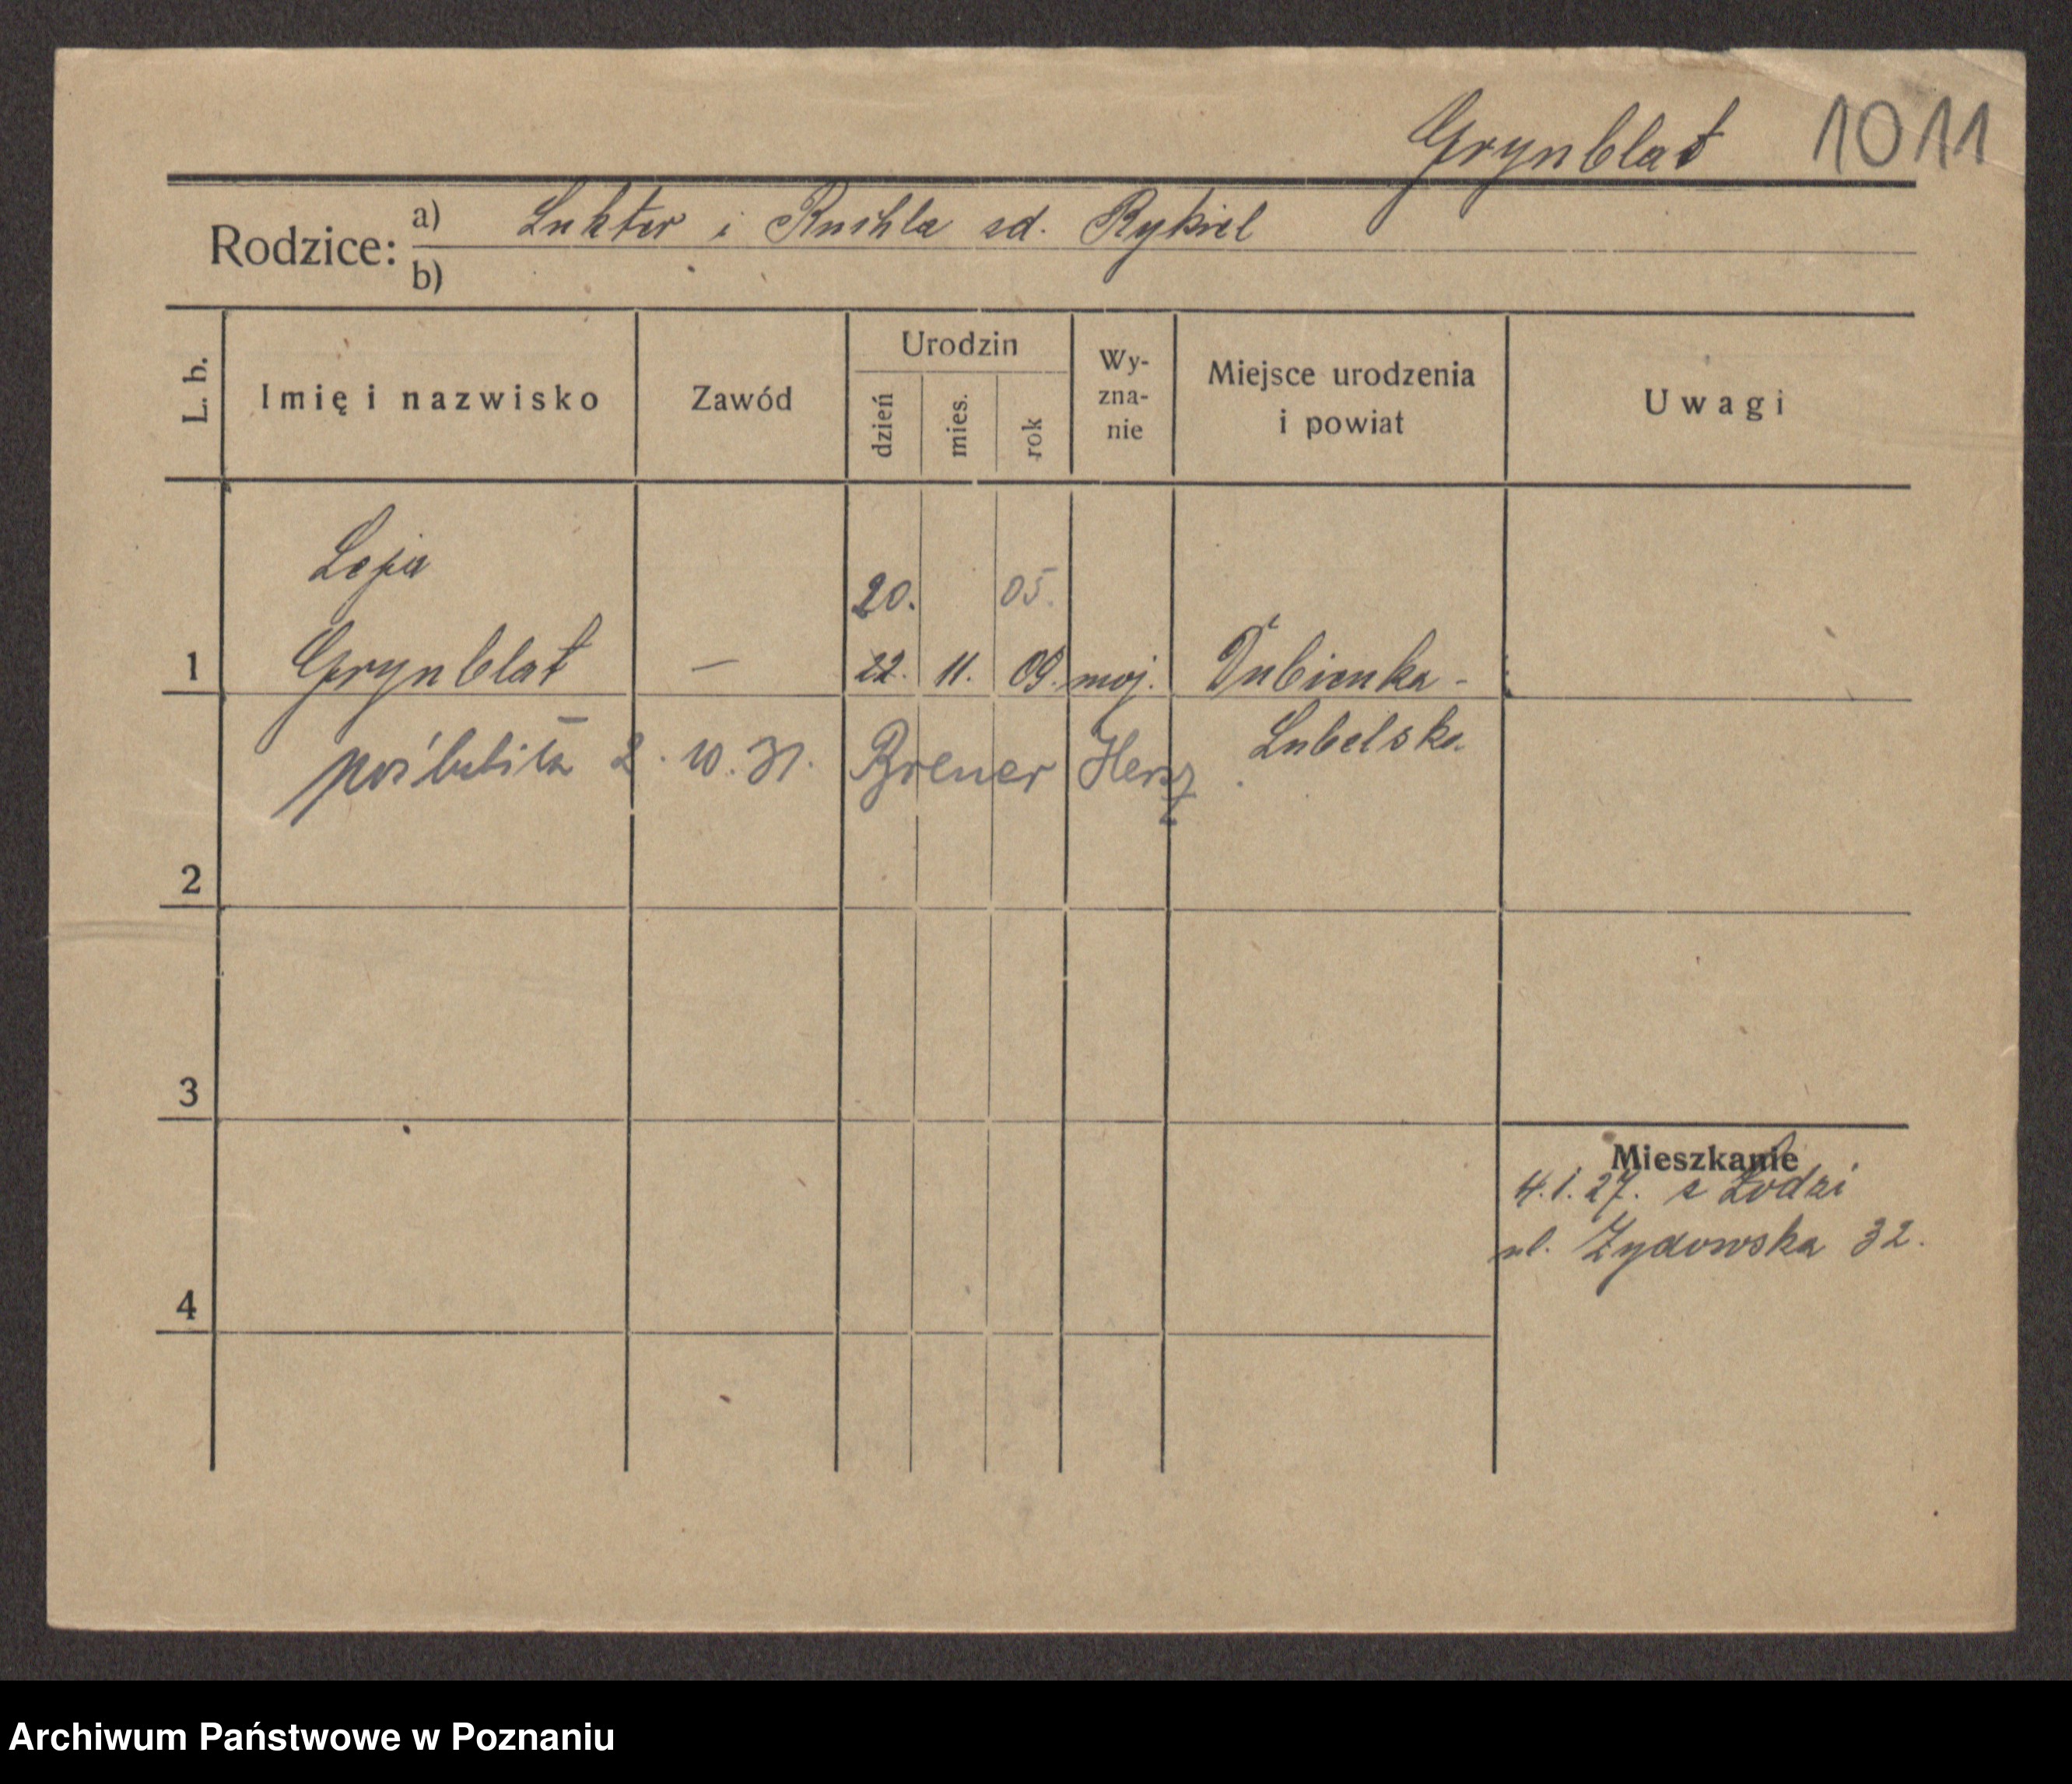 Grynblat 1011
Rodzice: a) Lukter i Ruchla zd. Rykiel
b)
L. b. Imię i nazwisko Zawód Urodzin dzień mies. rok Wy-zna-nie Miejsce urodzenia i powiat Uwagi
Leja
20. 05.
1 Grynblat — 22. 11. 09. moj. Dubienka -
Lubelska
poślubiła 2. 10. 31. Brener Hersz
2
3
Mieszkanie
4.1.27. z Łodzi
ul. Żydowska 32.
4
Archiwum Państwowe w Poznaniu